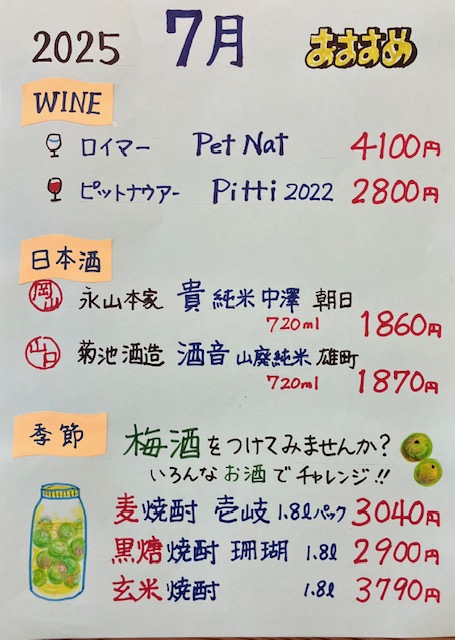 2025 7月 おすすめ
WINE
ロイマー Pet Nat 4100円
ピットナウアー Pitti 2022 2800円
日本酒
岡山 永山本家 貴 純米 中澤 朝日
720ml 1860円
山口 菊池酒造 酒音 山廃純米 雄町
720ml 1870円
季節 梅酒をつけてみませんか?
いろんなお酒でチャレンジ!!
麦焼酎 壱岐 1.8ℓパック 3040円
黒糖焼酎 珊瑚 1.8ℓ 2900円
玄米焼酎 1.8ℓ 3790円